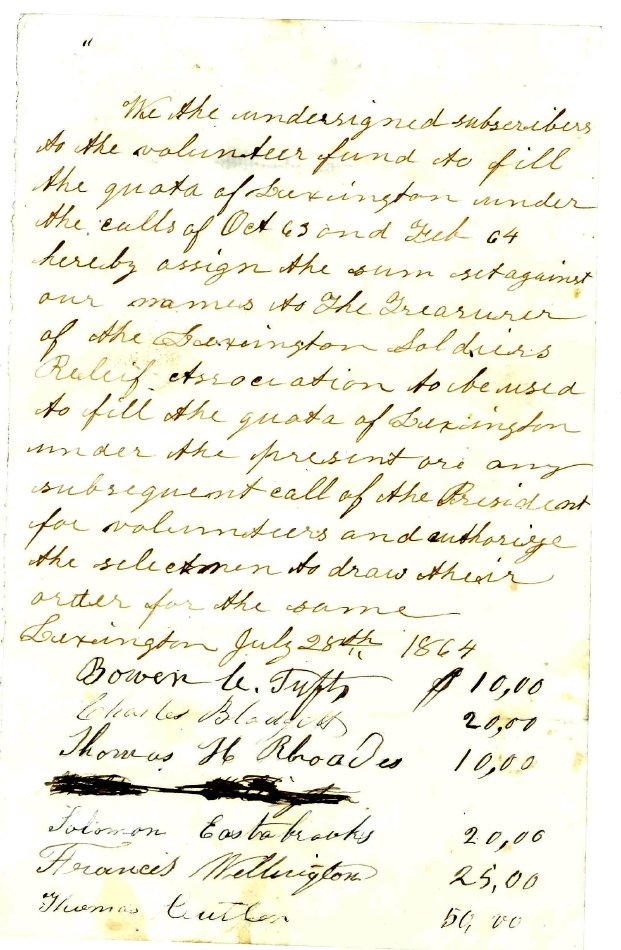 "
We the undersigned subscribers
to the volunteer fund to fill
the quota of Lexington under
the calls of Oct 63 and Feb 64
hereby assign the sum set against
our names to The Treasurer
of the Lexington Soldiers
Releif Association to be used
to fill the quota of Lexington
under the present ore any
subsequent call of the President
for volunteers and authorize
the selectmen to draw their
order for the same
Lexington July 28th 1864
Bowen C. Tufts $ 10,00
Charles Blodgett 20,00
Thomas H Rhoades 10,00
Solomon Eastabrooks 20,00
Francis Wellington 25,00
Thomas Cutler 50,00